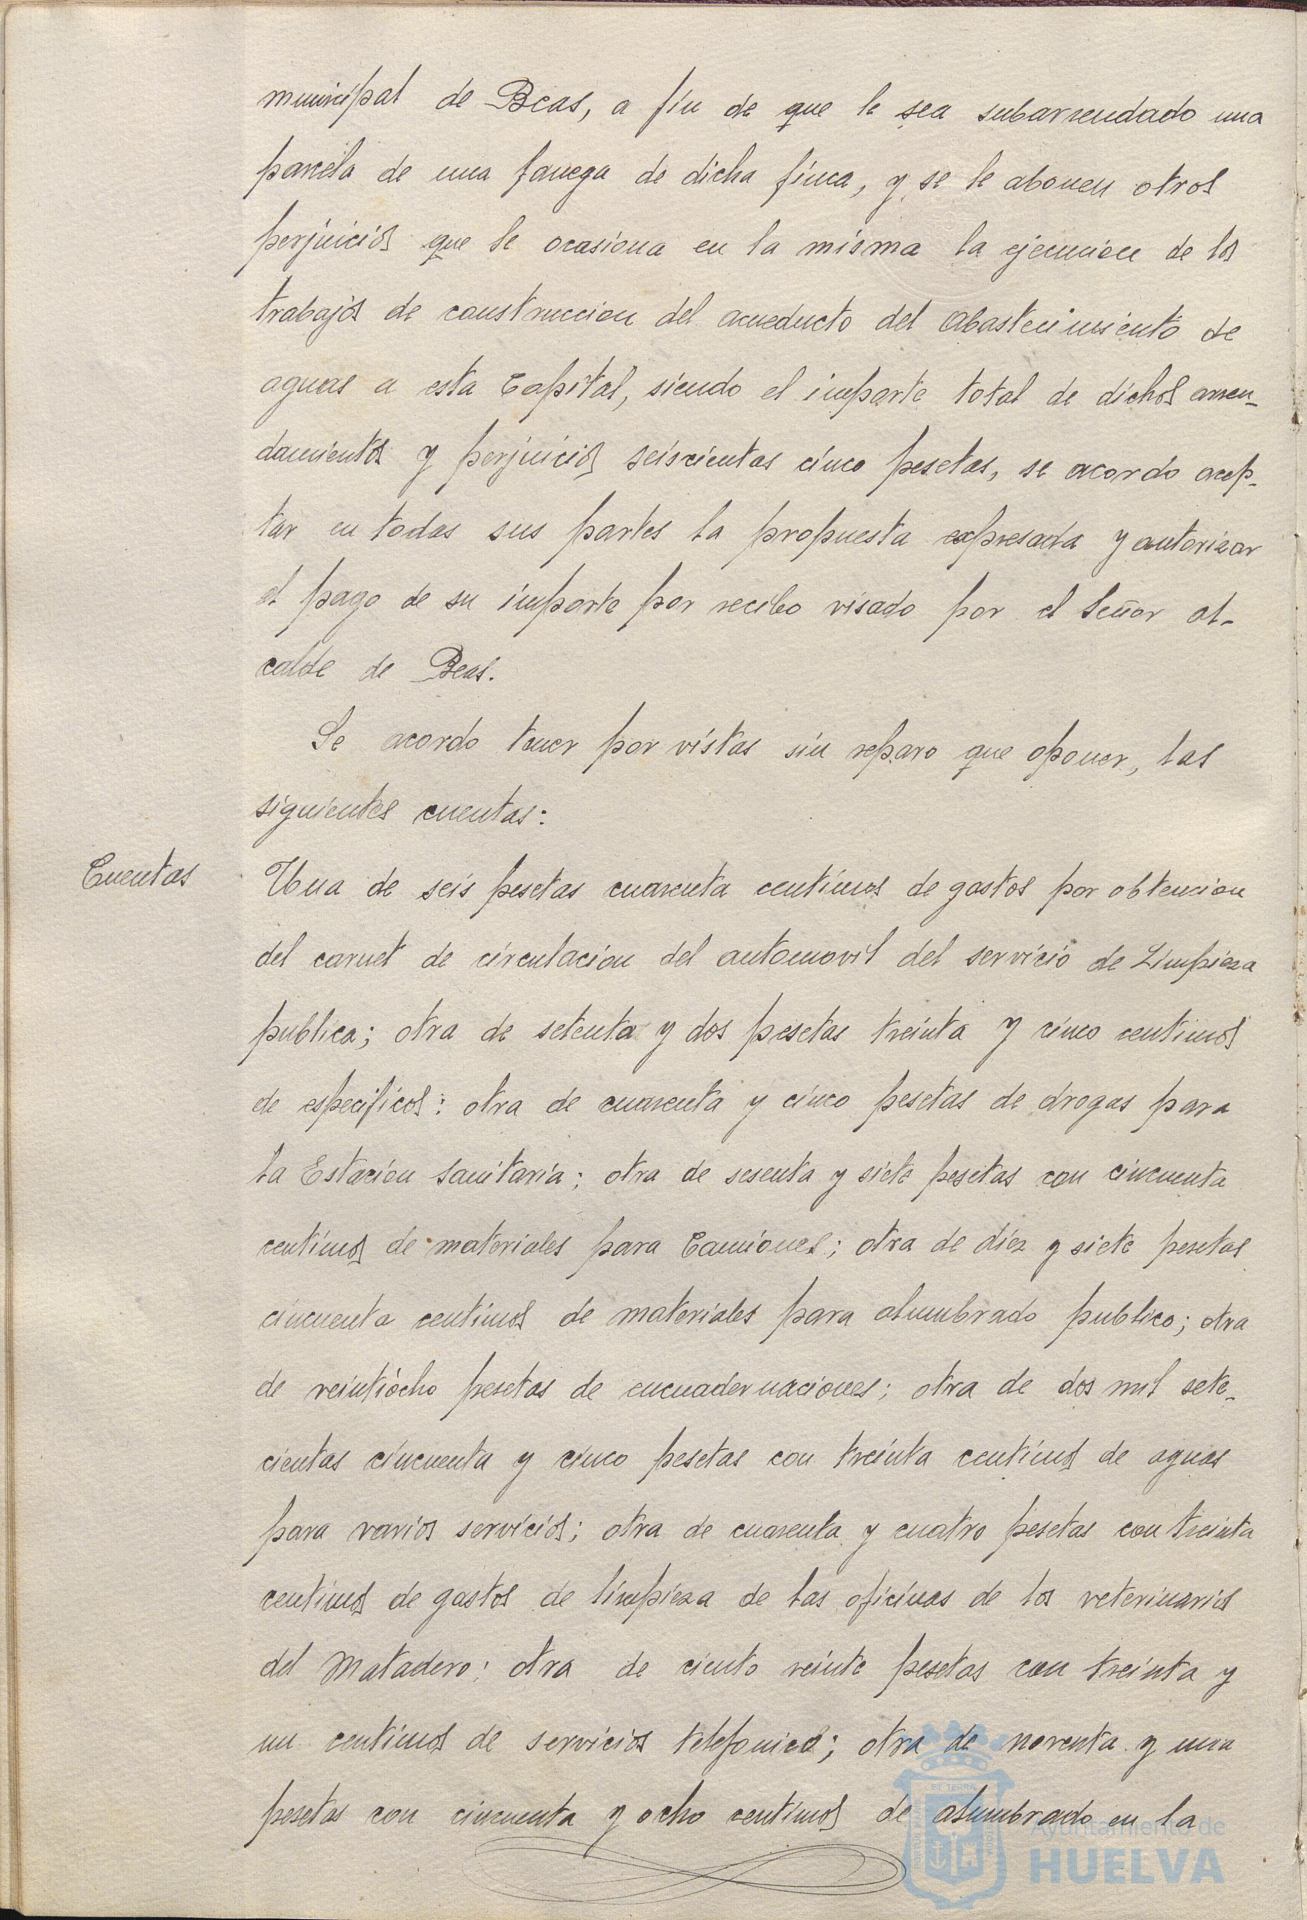 municipal de Beas, a fin de que le sea subarrendado una
parcela de una fanega de dicha finca, y se le abonen otros
perjuicios que le ocasiona en la misma la ejecucion de los
trabajos de construccion del acueducto del Abastecimiento de
aguas a esta Capital, siendo el importe total de dichos arren-
damientos y perjuicios seiscientas cinco pesetas, se acordo acep-
tar en todas sus partes la propuesta expresada y autorizar
el pago de su importe por recibo visado por el Señor al-
calde de Beas.
Se acordo tener por vistas sin reparo que oponer, las
siguientes cuentas:
Cuentas
Una de seis pesetas cuarenta centimos de gastos por obtencion
del carnet de circulacion del automovil del servicio de Limpieza
publica; otra de setenta y dos pesetas treinta y cinco centimos
de especificos: otra de cuarenta y cinco pesetas de drogas para
la Estacion Sanitaria; otra de sesenta y siete pesetas con cincuenta
centimos de materiales para Camiones; otra de diez y siete pesetas
cincuenta centimos de materiales para alumbrado publico; otra
de veintiocho pesetas de encuadernaciones; otra de dos mil sete-
cientas cincuenta y cinco pesetas con treinta centimos de aguas
para varios servicios; otra de cuarenta y cuatro pesetas con treinta
centimos de gastos de limpieza de las oficinas de los veterinarios
del Matadero: otra de ciento veinte pesetas con treinta y
un centimos de servicios telefonico; otra de noventa y una
pesetas con cincuenta y ocho centimos de alumbrado en la
Ayuntamiento de
HUELVA